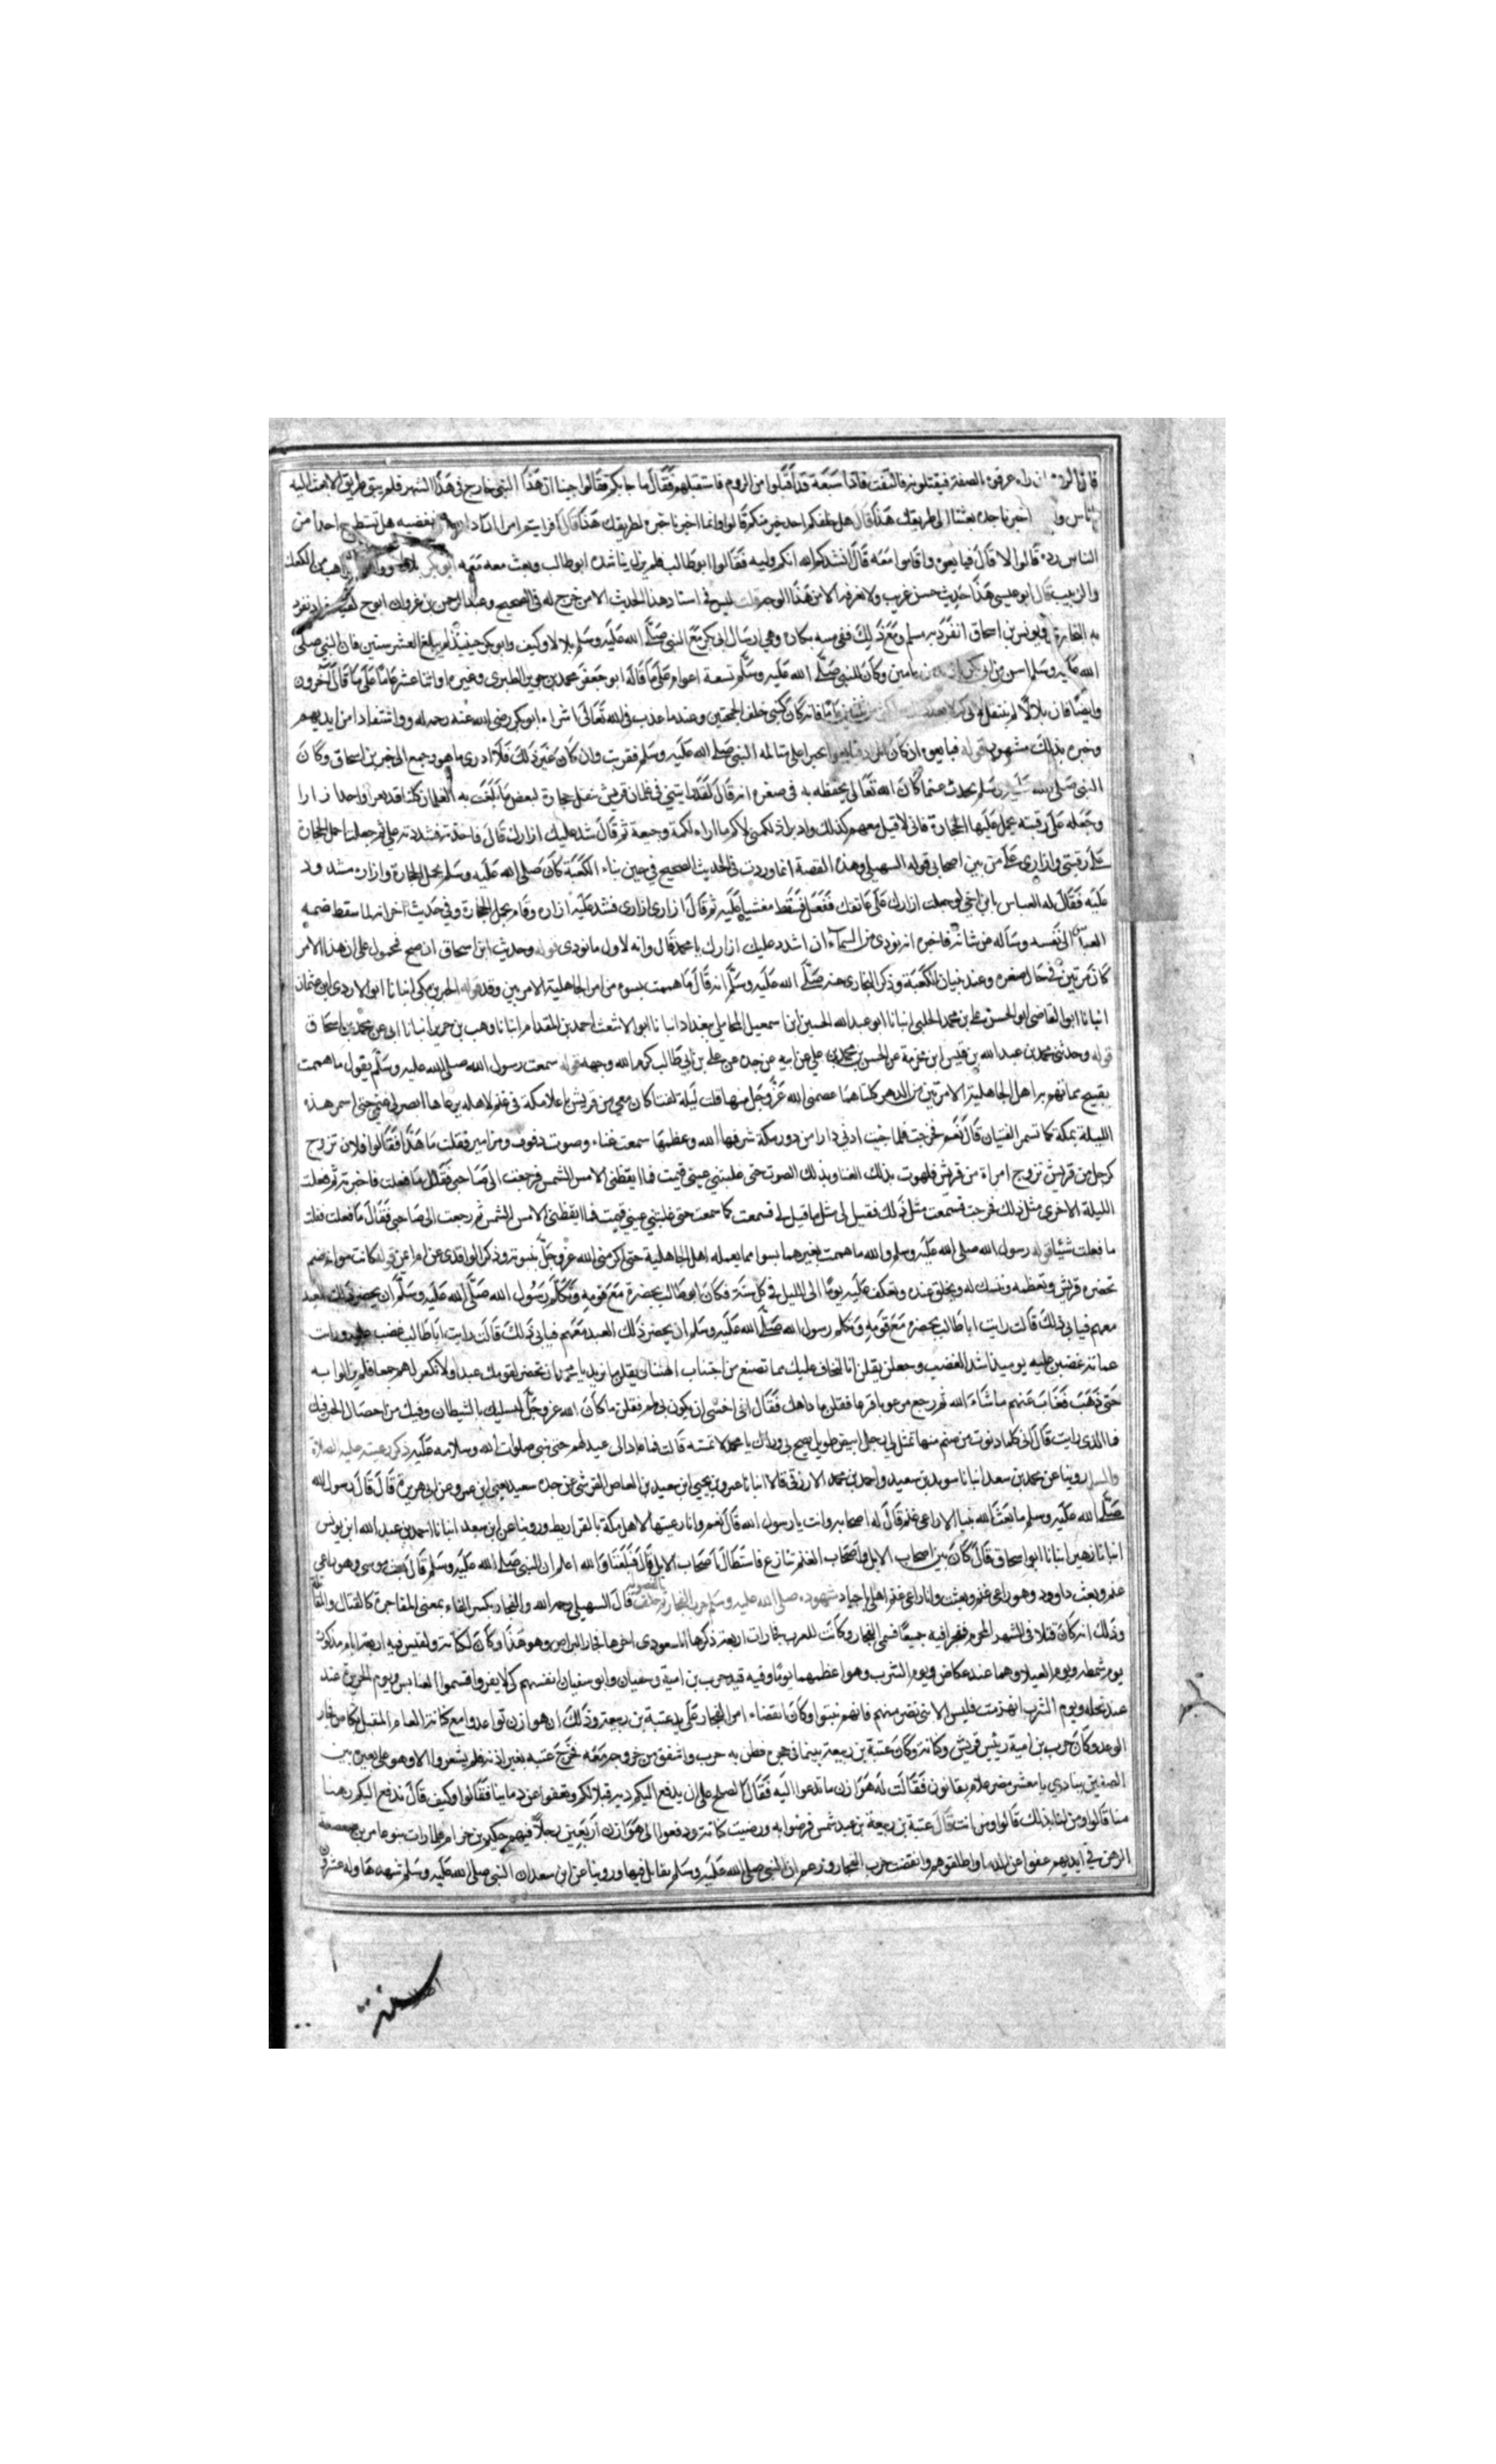 فان الروم ان راوه عرفوه بالصفة فيقتلونه فالتفت فاذا سبعة قد اقبلوا من الروم فاستقبلهم فقال ما جابكم فقالوا جينا ان هذا النبي خارج في هذا الشهر فلم يبق طريق الا بعث اليه
اناس وا اخبرنا خبره بعثنا الى طريقك هذا قال هل خلفكم احد خير منكم قالوا انما اخبرنا خبره لطريقك هذا قال افرايتم امرا اراد الله ان يقضيه هل يستطيع احدا من
الناس رده قالوا لا قال فبايعوه واقاموا معه قال انشدكم الله ايكم وليه فقالوا ابو طالب فلم يزل يناشده ابو طالب وبعث معه ابو بكر بلالا وزوده الراهب من الكعك
والزبيب قال ابو عيسى هذا حديث حسن غريب ولا نعرفه الا من هذا الوجه قلت ليس في اسناد هذا الحديث الا من خرج له في الصحيح وعبد الرحمن بن غزوان ابو نوح لقبه قراد تفرد
به البخاري ويونس بن اسحاق انفرد به مسلم ومع ذلك ففي متنه نكارة وهي ارسال ابي بكر مع النبي صلى الله عليه وسلم بلالا وكيف وابو بكر حينيذ لم يبلغ العشر سنين فان النبي صلى
الله عليه وسلم اسن من ابي بكر بازيد من عامين وكان للنبي صلى الله عليه وسلم تسعة اعوام على ما قاله ابو جعفر محمد بن جرير الطبري وغيره واثنا عشر عاما على ما قال آخرون
وايضا فان بلالا لم ينتقل لابي بكر الا بعد ذلك باكثر من ثلاثين عاما فانه كان لبني خلف الجمحيين وعندما عذب في الله تعالى اشتراه ابو بكر رضي الله عنه رحمة له واستنقاذا من ايديهم
وخبره بذلك مشهور قوله فبايعوه ان كان المراد فبايعوا بحيرا على مسالمة النبي صلى الله عليه وسلم فقريب وان كان غير ذلك فلا ادري ما هو رجع الى خبر بن اسحاق وكان
النبي صلى الله عليه وسلم يحدث عما كان الله تعالى يحفظه به في صغره انه قال لقد رايتني في غلمان قريش ننقل حجارة لبعض ما يلعب به الغلمان كلنا قد تعرا واحدا زارا
وجعله على رقبته يحمل عليها الحجارة فاني لاقبل معهم كذلك وادبر اذ لكمني لاكم ما اراه لكمة وجيعة ثم قال شد عليك ازارك قال فاخذته فشددته علي ثم جعلت احمل الحجارة
على رقبتي وازاري علي من بين اصحابي قوله السهيلي وهذه القصة انما وردت في الحديث الصحيح في حين بناء الكعبة كان صلى الله عليه وسلم يحمل الحجارة وازاره مشدود
عليه فقال له العباس يا بن اخي لو جعلت ازارك على عاتقك ففعل فسقط مغشيا عليه ثم قال ازاري ازاري فشد عليه ازاره وقام يحمل الحجارة وفي حديث آخر انه لما سقط ضمه
العباس الى نفسه وساله عن شانه فاخبره انه نودي من السماء ان اشدد عليك ازارك يا محمد قال وانه لاول ما نودي قوله وحديث ابن اسحاق ان صح محمول على ان هذا الامر
كان مرتين في حال صغره وعند بنيان الكعبة وذكر البخاري عنه صلى الله عليه وسلم انه قال ما هممت بسوء من امر الجاهلية الا مرتين وقد
انبانا ابو القاضي ابو الحسن علي بن محمد الحلبي انبانا ابو عبد الله الحسين بن اسمعيل المحاملي ببغداد انبانا ابو الاشعث احمد بن المقدام انبانا وهب بن جرير انبانا ابي عن محمد بن اسحاق
قوله وحدثني محمد بن عبد الله بن قيس ابن مخرمة عن الحسن بن محمد بن علي عن ابيه عن جده عن علي بن ابي طالب كرم الله وجهه قوله سمعت رسول الله صلى الله عليه وسلم يقول ما هممت
بقبيح مما نهم به اهل الجاهلية الا مرتين من الدهر كلتاهما عصمني الله عز وجل منها قلت ليلة لفتا كان معي من قريش باعلا مكة في غنم لاهله يرعاها ابصر لي غنمي حتى اسمر هذه
الليلة بمكة كما تسمر الفتيان قال نعم فخرجت فلما جيت ادنى دارا من دور مكة شرفها الله وعظمها سمعت غناء وصوت دفوف ومزامير فقلت ما هذا فقالوا فلان تزوج
كرجل من قريش تزوج امراة من قريش فلهوت بذلك الغنا وبذلك الصوت حتى غلبتني عيني فنمت فما ايقظني الا مس الشمس فرجعت الى صاحبي فقال ما فعلت فاخبرته ثم فعلت
الليلة الاخرى مثل ذلك فخرجت فسمعت مثل ذلك فقيل لي مثل ما قيل لي فسمعت كما سمعت حتى غلبتني عيني فنمت فما ايقظني الا مس الشمس ثم رجعت الى صاحبي فقال ما فعلت فقلت
ما فعلت شيئا قوله رسول الله صلى الله عليه وسلم والله ما هممت بغيرهما بسوا مما يعمله اهل الجاهلية حتى اكرمني الله عز وجل بنبوته وذكر الواقدي عن ام ايمن قوله كانت بوانة صنم
تحضره قريش وتعظمه وتنسك له ويحلق عنده وتعكف عليه يوما الى الليل في كل سنة فكان ابو طالب يحضره مع قومه وتكلم رسول الله صلى الله عليه وسلم ان يحضر ذلك العيد
معهم فيابى ذلك قالت رايت ابا طالب يحضره مع قومه وتكلم رسول الله صلى الله عليه وسلم ان يحضر ذلك العيد معهم فيابى ذلك قالت رايت ابا طالب غضب عليه ورايت
عماته غضبن عليه يوميذ اشد الغضب وجعلن يقلن انا لنخاف عليك مما تصنع من اجتناب الهتنا ويقلن ما تريد يا محمد ان تحضر لقومك عيدا ولا تكثر لهم جمعا فلم يزالوا به
حتى ذهب فغاب عنهم ما شاء الله ثم رجع مرعوبا فزعا فقلن ما دهاك فقال اني اخشى ان يكون بي لمم فقلن ما كان الله عز وجل ليبتليك بالشيطان وفيك من خصال الخير فيك
فما الذي رايت قال اني كلما دنوت من صنم منها تمثل لي رجل ابيض طويل يصيح بي وراك يا محمد لا تمسه قالت فما عاد الى عيد لهم حتى نبي صلوات الله وسلامه عليه ذكر رعيته عليه الصلاة
والسلام روينا عن محمد بن سعد انبانا سويد بن سعيد واحمد بن محمد الازرقي قالا انبانا عمرو بن يحيى ابن سعيد بن العاص القرشي عن جده سعيد يعني ابن عمرو عن ابي هريرة قال قال رسول الله
صلى الله عليه وسلم ما بعث الله نبيا الا راعي غنم قال له اصحابه وانت يا رسول الله قال نعم وانا رعيتها لاهل مكة بالقراريط وروينا عن ابن سعد انبانا احمد بن عبد الله ابن يونس
انبانا زهير انبانا ابو اسحاق قال كان بين اصحاب الابل واصحاب الغنم تنازع فاستطال اصحاب الابل قال فبلغنا والله اعلم ان النبي صلى الله عليه وسلم قال بعث موسى وهو راعي
غنم وبعث داوود وهو راعي غنم وبعثت وانا راعي غنم اهلي باجياد شهوده صلى الله عليه وسلم حرب الفجار ثم حلف الفضول قال السهيلي رحمه الله والفجار بكسر الفاء بمعنى المفاجرة كالقتال والمقاتلة
وذلك انه كان قتلا في الشهر الحرام ففجرا فيه جميعا فسمي الفجار وكانت للعرب فجارات اربعة ذكرها المسعودي اخرها فجار البراض وهو هذا وكان لكنانة ولقيس فيه اربعة ايام مذكورة
يوم شمطة ويوم العبلا وهما عند عكاض ويوم الشرب وهو اعظمهما يوما وفيه قيد حرب بن امية وسفيان وابو سفيان انفسهم كي لا يفروا فسموا العنابس ويوم الحريرة عند
عند نخلة ويوم الشرب انهزمت قيس الا بني نضر منهم فانهم ثبتوا وكان انقضاء امر الفجار على يد عتبة بن ربيعة وذلك ان هوازن تواعدوا مع كنانة العام المقبل بعكاض فجاء
الوعد وكان حرب بن امية رئيس قريش وكنانة وكان عتبة بن ربيعة يتيما في حجره فضن به حرب واشفق من خروجه معه فخرج عتبة بغير اذنه فلم يشعروا الا وهو على بعيره بين
الصفين ينادي يا معشر مضر علام تفانون فقالت له هوازن ما تدعوا اليه فقال الصلح على ان يدفع اليكم دية قتلاكم وتعفوا عن دماينا فقالوا وكيف قال ندفع اليكم رهنا
منا قالوا ومن لنا بذلك قالوا ومن انت قال عتبة بن ربيعة بن عبد شمس فرضوا به ورضيت كنانة ودفعوا الى هوازن اربعين رجلا فيهم حكيم بن حزام فلما رات بنو عامر بن صعصعة
الرهن في ايديهم عفوا عن الدماء واطلقوهم وانقضت حرب الفجار وزعم ان النبي صلى الله عليه وسلم يقابل فيها وروينا عن ابن سعد ان النبي صلى الله عليه وسلم شهدها وله عشرون
سنة